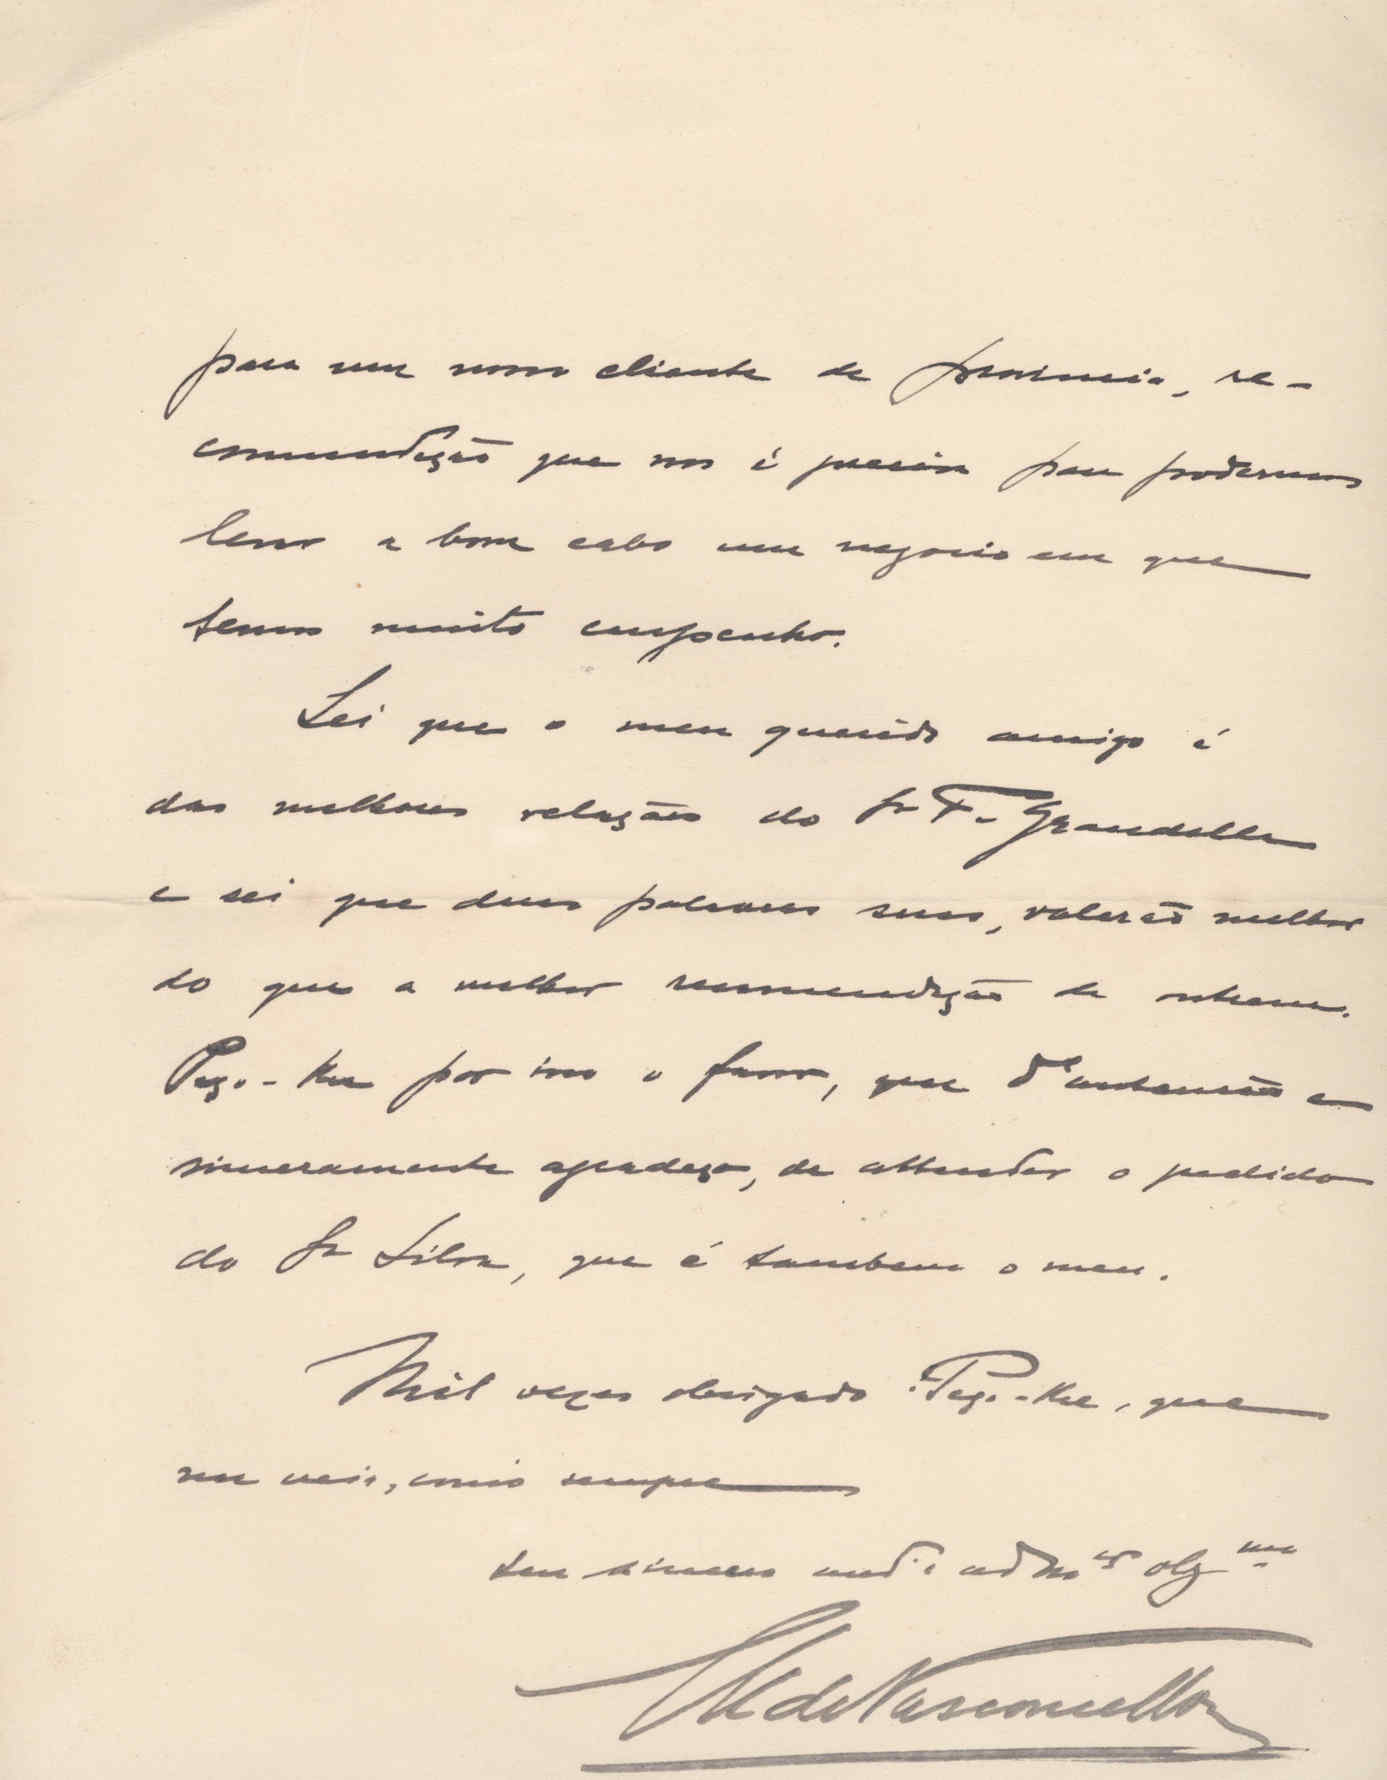 para um novo cliente de provincia, re-
commendação que nos é precisa para podermos
levar a bom cabo um negocio em que
temos muito empenho.
Sei que o meu querido amigo é
das melhores relações do Sr F. Grandella
e sei que duas palavras suas, valerão melhor
do que a melhor recommendação de outrem.
Peço-lhe por isso o favor, que d'antemão e
sinceramente agradeço, de attender o pedido
do Sr Silva, que é tambem o meu.
Mil vezes obrigado Peço-lhe, que
me veja, como sempre
seu sincero am.º e admor obgmo
de Vasconcellos